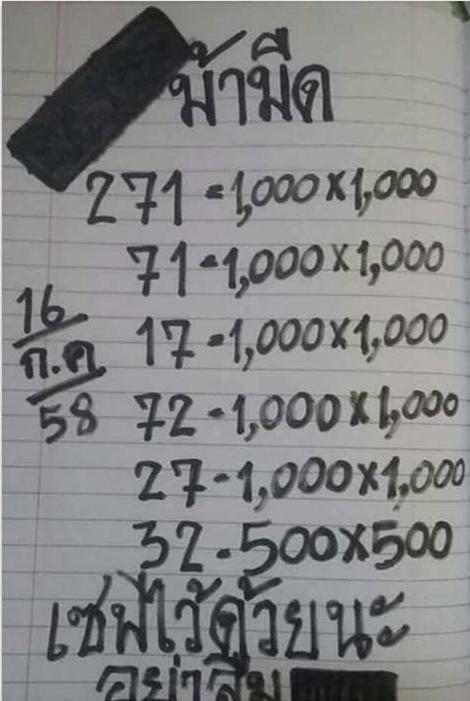 ม้ามืด
271=1,000×1,000
71=1,000×1,000
17-1,000×1,000
72-1,000×1,000
27-1,000×1,000
32-500×500
16
ก.ค
58
เซฟไว้ด้วยนะ
อย่าลืม